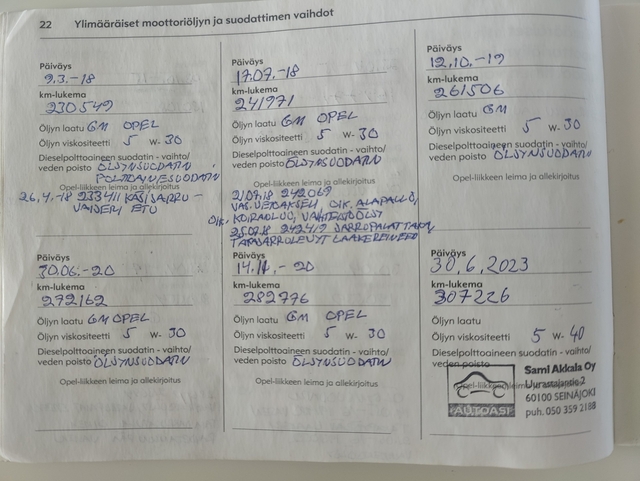 22 Ylimääräiset moottoriöljyn ja suodattimen vaihdot
Päiväys
9.3.-18
km-lukema
230549
Öljyn laatu GM OPEL
Öljyn viskositeetti 5 W- 30
Dieselpolttoaineen suodatin - vaihto/
veden poisto ÖLJYNSUODATIN
POLTTOAINESUODATIN
Opel-liikkeen leima ja allekirjoitus
26.4.-18 233411 KÄSIJARRU-
VAIJERI ETU
Päiväys
17.07.-18
km-lukema
241971
Öljyn laatu GM OPEL
Öljyn viskositeetti 5 W- 30
Dieselpolttoaineen suodatin - vaihto/
veden poisto ÖLJYNSUODATIN
Opel-liikkeen leima ja allekirjoitus
242069
OIK. ALAPALLO,
OIK. KOIRANLUU,
25.07.18 242412 JARRUPALAT TAKA,
TAKAJARRULEVYT LAAKEREINEEN
Päiväys
12.10.-19
km-lukema
261506
Öljyn laatu GM
Öljyn viskositeetti 5 W- 30
Dieselpolttoaineen suodatin - vaihto/
veden poisto ÖLJYNSUODATIN
Opel-liikkeen leima ja allekirjoitus
Päiväys
30.06.-20
km-lukema
272162
Öljyn laatu GM OPEL
Öljyn viskositeetti 5 W- 30
Dieselpolttoaineen suodatin - vaihto/
veden poisto ÖLJYNSUODATIN
Opel-liikkeen leima ja allekirjoitus
Päiväys
14.11.-20
km-lukema
282776
Öljyn laatu GM OPEL
Öljyn viskositeetti 5 W- 30
Dieselpolttoaineen suodatin - vaihto/
veden poisto ÖLJYNSUODATIN
Opel-liikkeen leima ja allekirjoitus
Päiväys
30.6.2023
km-lukema
307226
Öljyn laatu
Öljyn viskositeetti 5 W- 40
Dieselpolttoaineen suodatin - vaihto/
veden poisto
Opel-liikkeen leima ja allekirjoitus
AUTOASI
Sami Akkala Oy
60100 SEINÄJOKI
puh. 050 359 2188